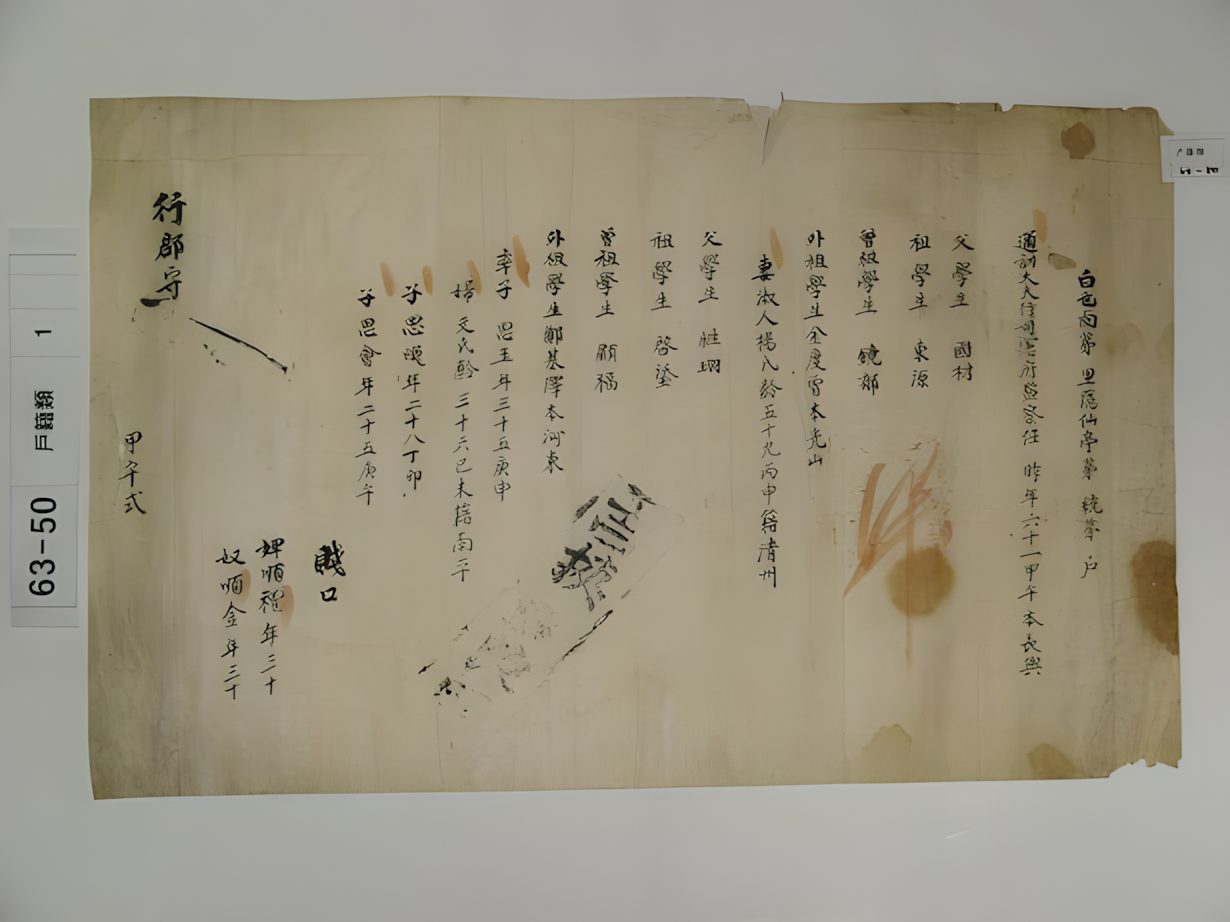 白也面第 里隱仙亭第 統第 戶
通訓大夫行司憲府監察任 昨年六十一甲午本長興
父學生 國材
祖學生 東源
曾祖學生 鏡
外祖學生金度 本光山
妻淑人楊氏齡五十九丙申籍淸州
父學生
祖學生 啓瑩
曾祖學生 顯福
外祖學生鄭基澤本河東
率子 思 年三十五庚申
婦文氏齡三十六己未籍南平
子思暎年二十八丁卯
子思會年二十五庚午
賤口
婢順 年三十
奴順金年三十
行郡守
甲午式
63-50 戶籍類 1